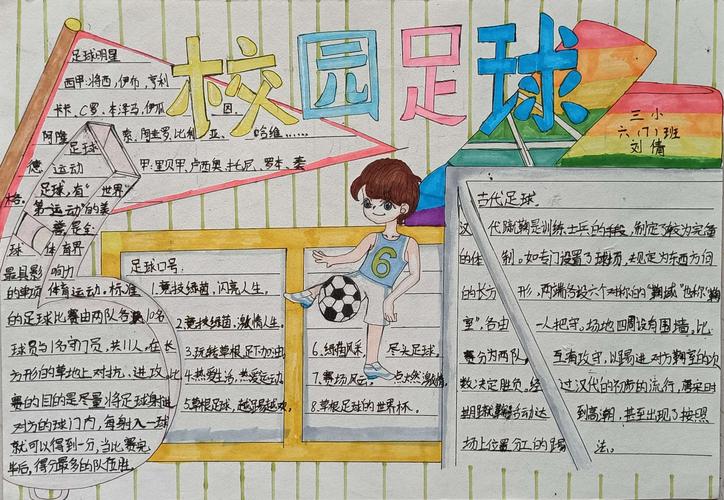 校园足球
三小
六(1)班
刘倩
足球明星
西甲:将西,伊布,亨利
卡卡,C罗,本泽马,伊瓜 因.
阿隆 索,阿圭罗,比利 亚、 哈维……
德 甲:里贝里,卢西奥,托尼、罗本、
足球
运动
足球,有“世界
第一运动”的美
誉,是全
球 体育界
最具影响力
的单项体育运动,标准
的足球比赛由两队各10名
球员与1名守门员,共11人,在长
方形的草地上对抗、进攻,比
赛的目的是尽量将足球射进
对方的球门内,每射入一球
就可以得到一分,当比赛完
毕后,得分最多的队伍胜。
足球口号:
1.竞技绿茵,闪亮人生。
2.竞技绿茵,激情人生。
3.玩转草根,足下加油
4.热爱生活,热爱运动
5.草根足球,越踢越欢。
6.绿茵风采 尽头足球。
7.赛场风云 点燃激情
8.草根足球的世界杯。
古代足球。
汉 代蹴鞠是训练士兵的手段,制定了较为完备
的体 制。如专门设置了球场,规定为东西方向
的长方 形,两端各设六个对称的“鞠域”也称“鞠
室”,各由 一人把守。场地四周设有围墙,比
赛分为两队, 互有攻守,以踢进对方鞠室的次
数决定胜负。经 过汉代的初步的流行,唐宋时
期蹴鞠活动达 到高潮,甚至出现了按照
场上位置分工的踢 法。